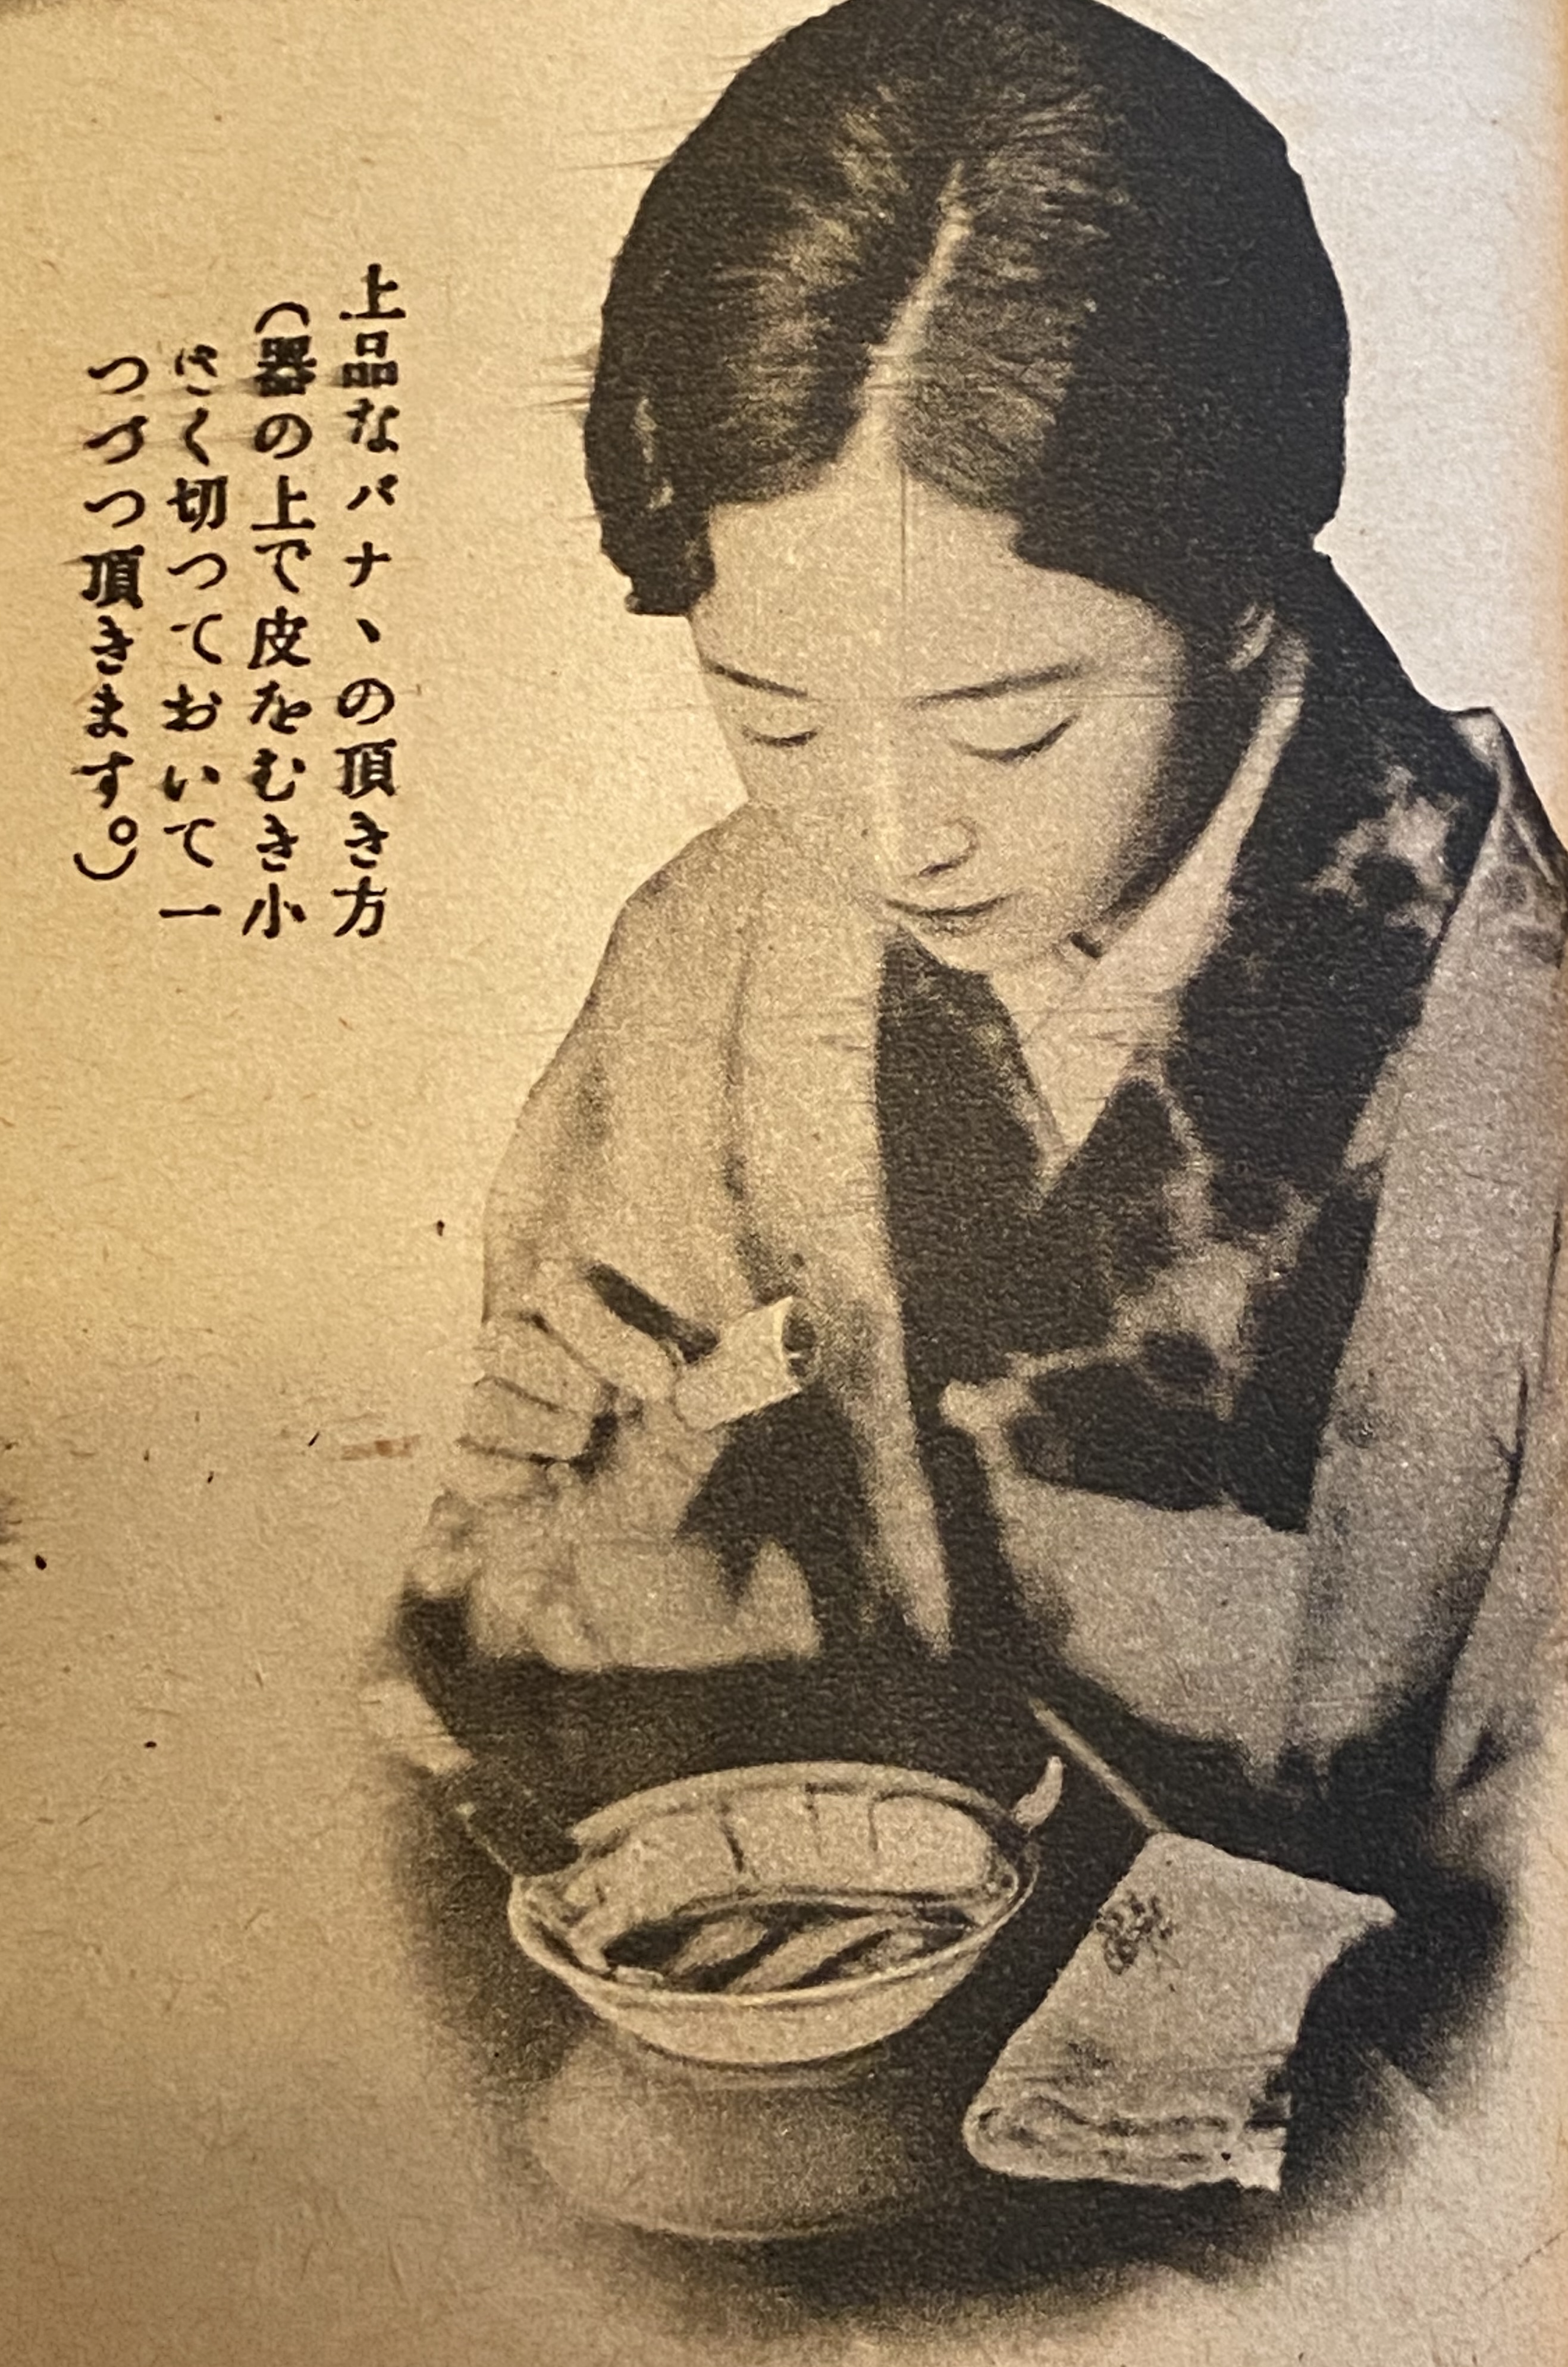 上品なバナヽの頂き方
（器の上で皮をむき小
さく切つておいて一
つづつ頂きます。）